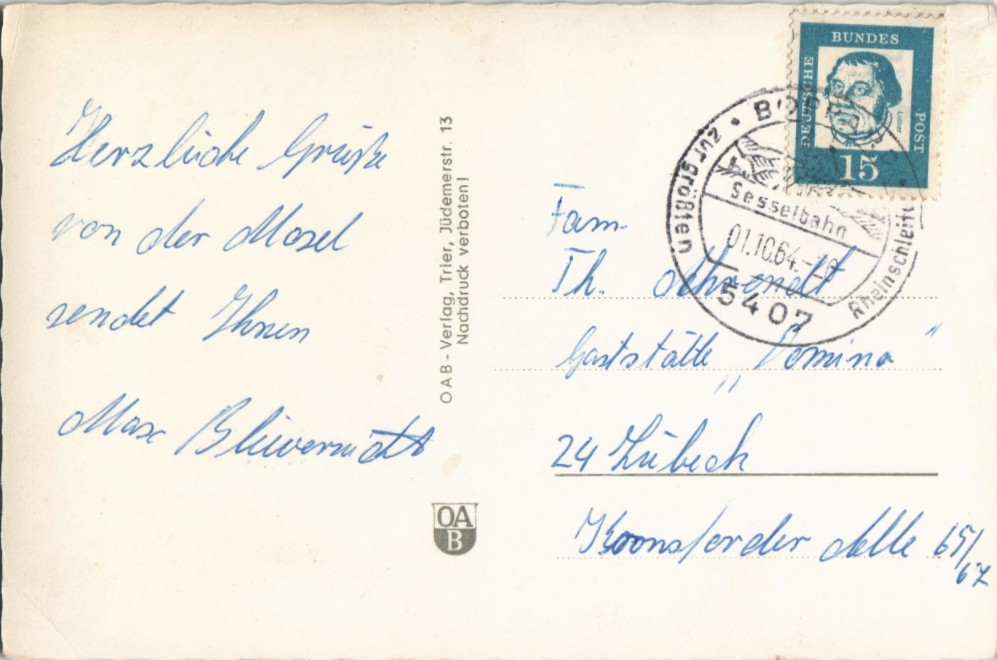 Herzliche Grüße
von der Mosel
sendet Ihnen
Max
OAB - Verlag, Trier, Jüdemerstr. 13
Nachdruck verboten!
OA
B
DEUTSCHE
BUNDES
POST
Luther
15
zur größten
Rheinschleife
Sesselbahn
01.10.64.-20
5407
Fam.
Th. Schwendt
Gaststätte „Domino"
24 Lübeck
65/
67